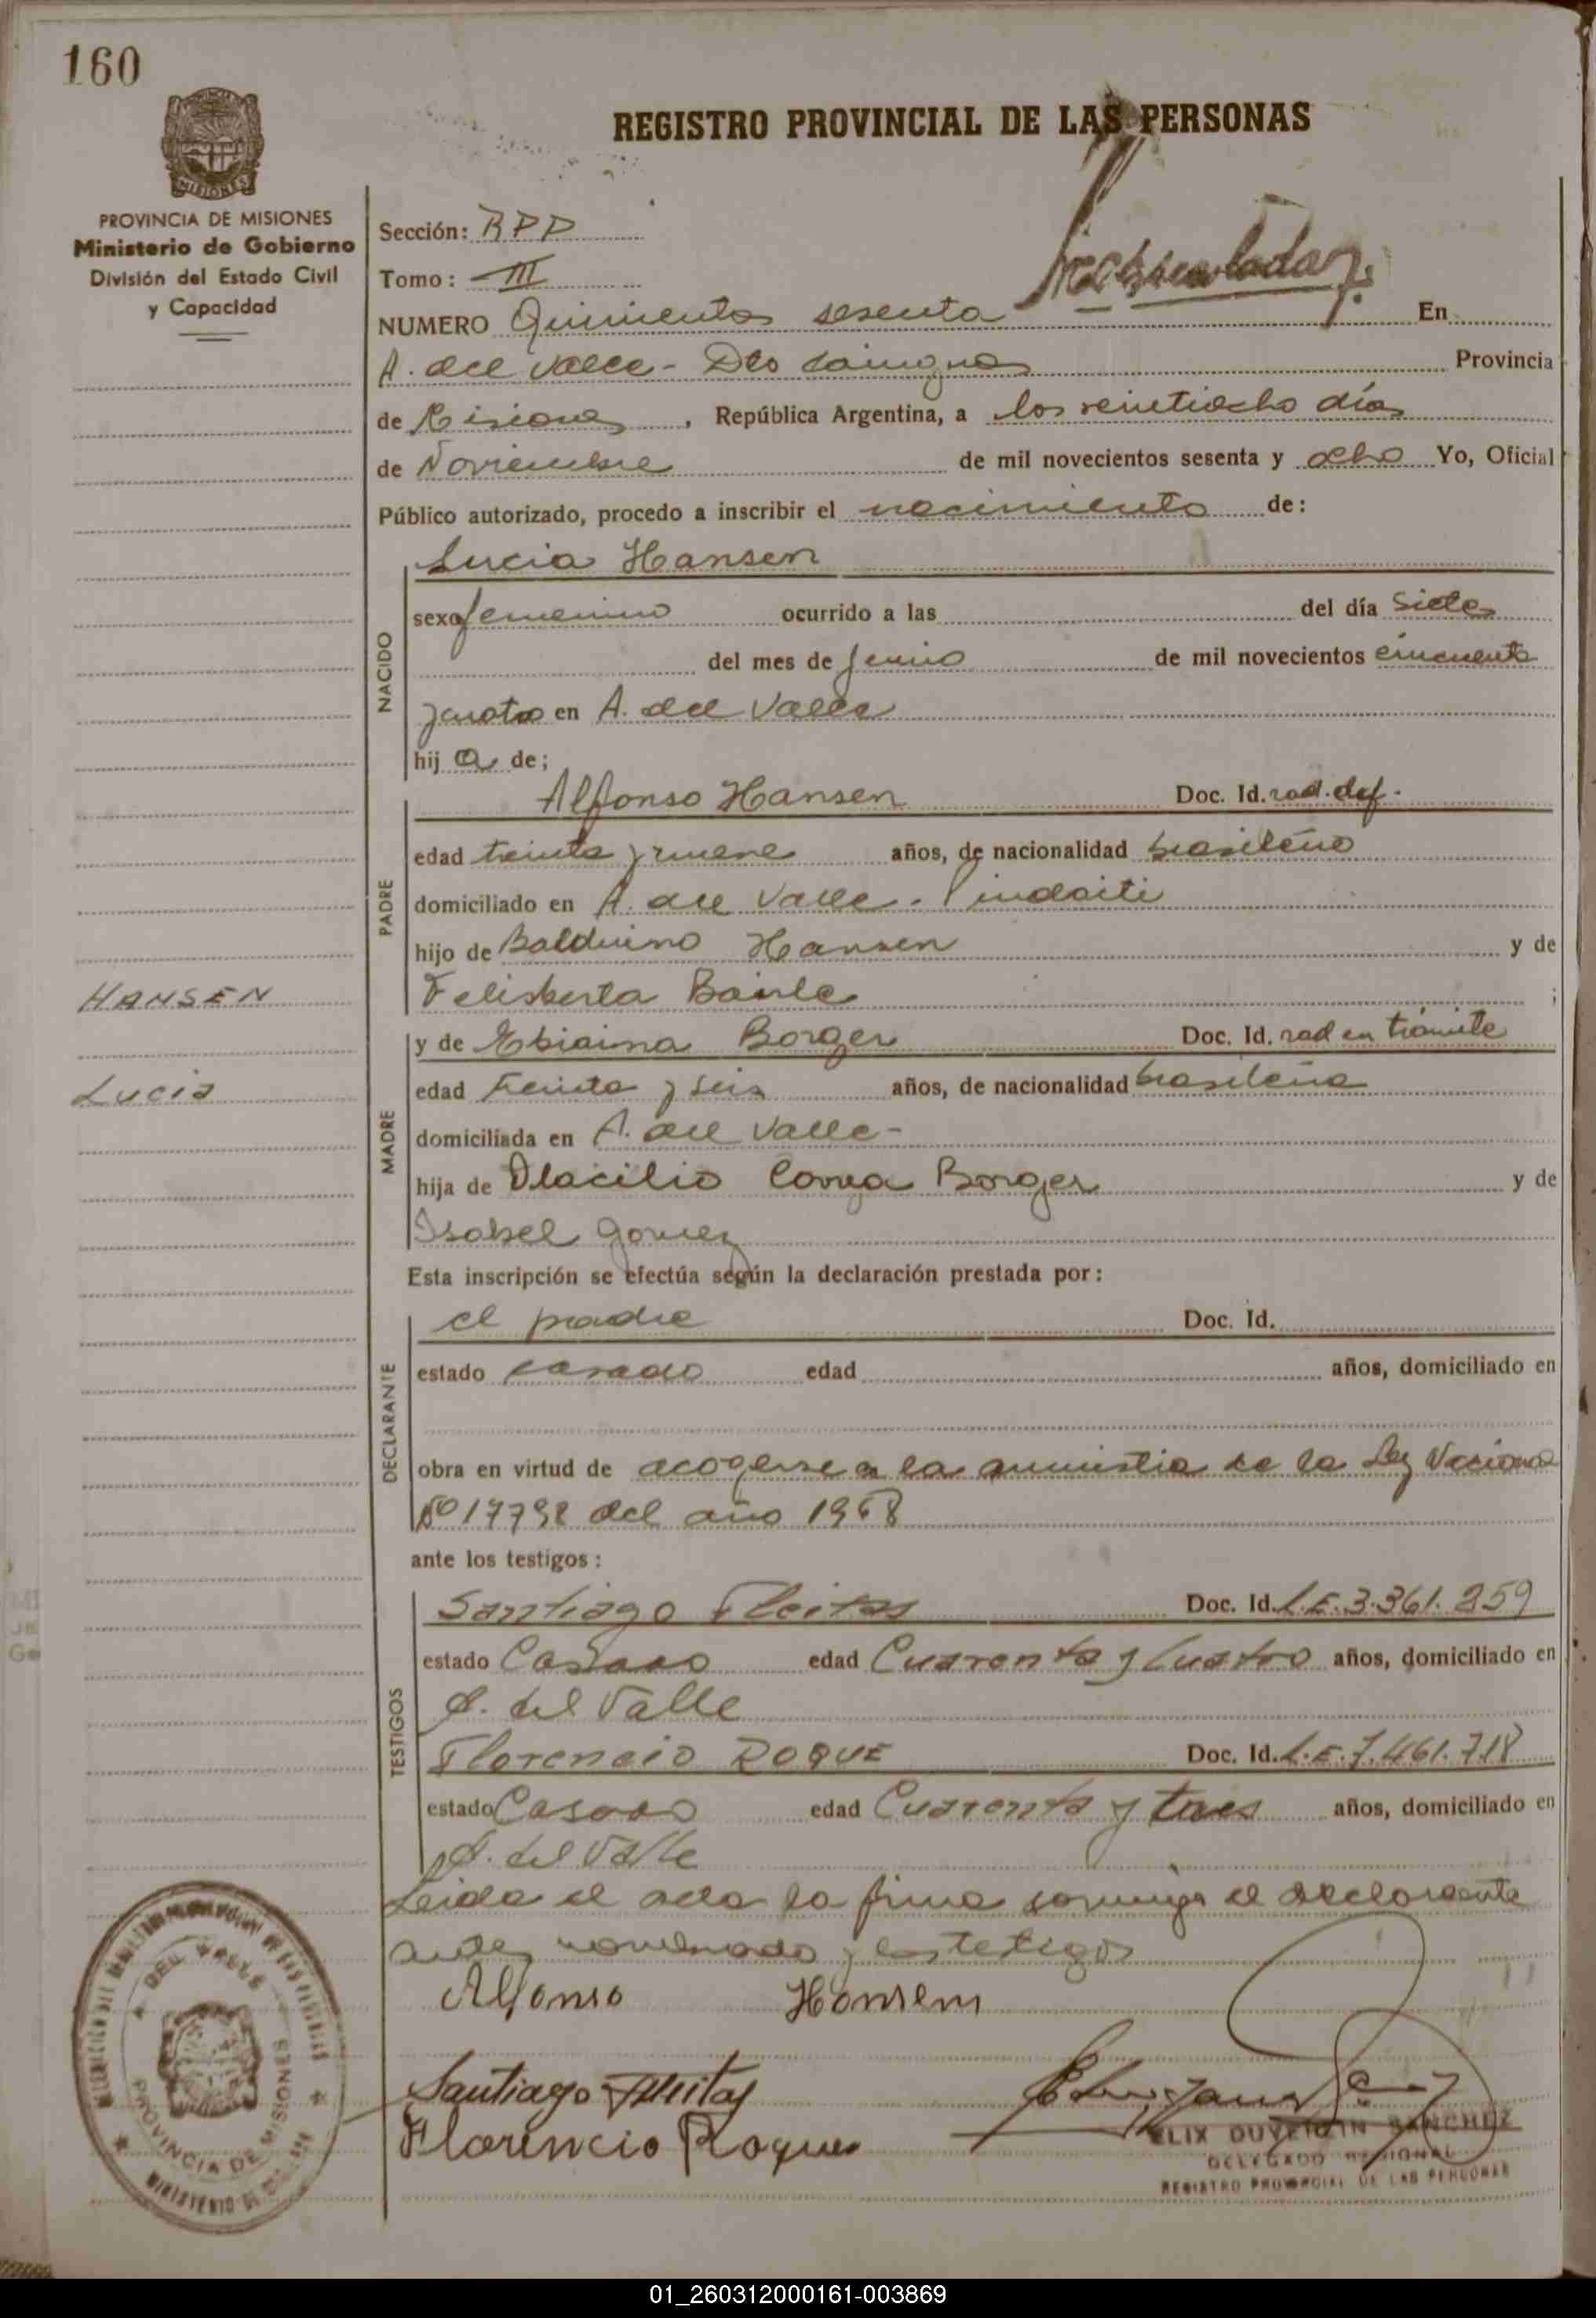 160
REGISTRO PROVINCIAL DE LAS PERSONAS
MISIONES
PROVINCIA DE MISIONES
Ministerio de Gobierno
División del Estado Civil
y Capacidad
Sección: RPP
Tomo: III
NUMERO Quinientos sesenta En
A. del Valle - Dto Cainguas Provincia
de Misiones, República Argentina, a los veintiocho días
de Noviembre de mil novecientos sesenta y ocho Yo, Oficial
Público autorizado, procedo a inscribir el nacimiento de:
NACIDO
Lucia Hansen
sexo femenino ocurrido a las del día Siete
del mes de Junio de mil novecientos cincuenta
y cuatro en A. del Valle
hij a de;
PADRE
Alfonso Hansen Doc. Id. rad. def.
edad treinta y nueve años, de nacionalidad brasileño
domiciliado en A. del Valle - Pindaiti
hijo de Balduino Hansen y de
Felisberta ;
HANSEN
MADRE
y de Borger Doc. Id. rad en trámite
Lucia
edad treinta y seis años, de nacionalidad brasileña
domiciliada en A. del Valle -
hija de Borger y de
Isabel Gomez
Esta inscripción se efectúa según la declaración prestada por:
DECLARANTE
el padre Doc. Id.
estado casado edad años, domiciliado en
obra en virtud de acogerse a la amnistia de la Ley Nacional
Nº 17798 del año 1968
ante los testigos:
TESTIGOS
Santiago Fleitas Doc. Id. L.E. 3.361.259
estado Casado edad Cuarenta y Cuatro años, domiciliado en
A. del Valle
Florencio ROQUE Doc. Id. L.E. 7.461.718
estado Casado edad Cuarenta y tres años, domiciliado en
A. del Valle
Leida el acta la firma conmigo el declarante
antes nombrado y los testigos
Alfonso Honsem
Santiago Fleitas
Florencio Roque
SANCHEZ
DELEGADO REGIONAL
REGISTRO PROVINCIAL DE LAS PERSONAS
DEL VALLE
PROVINCIA DE MISIONES
01_260312000161-003869